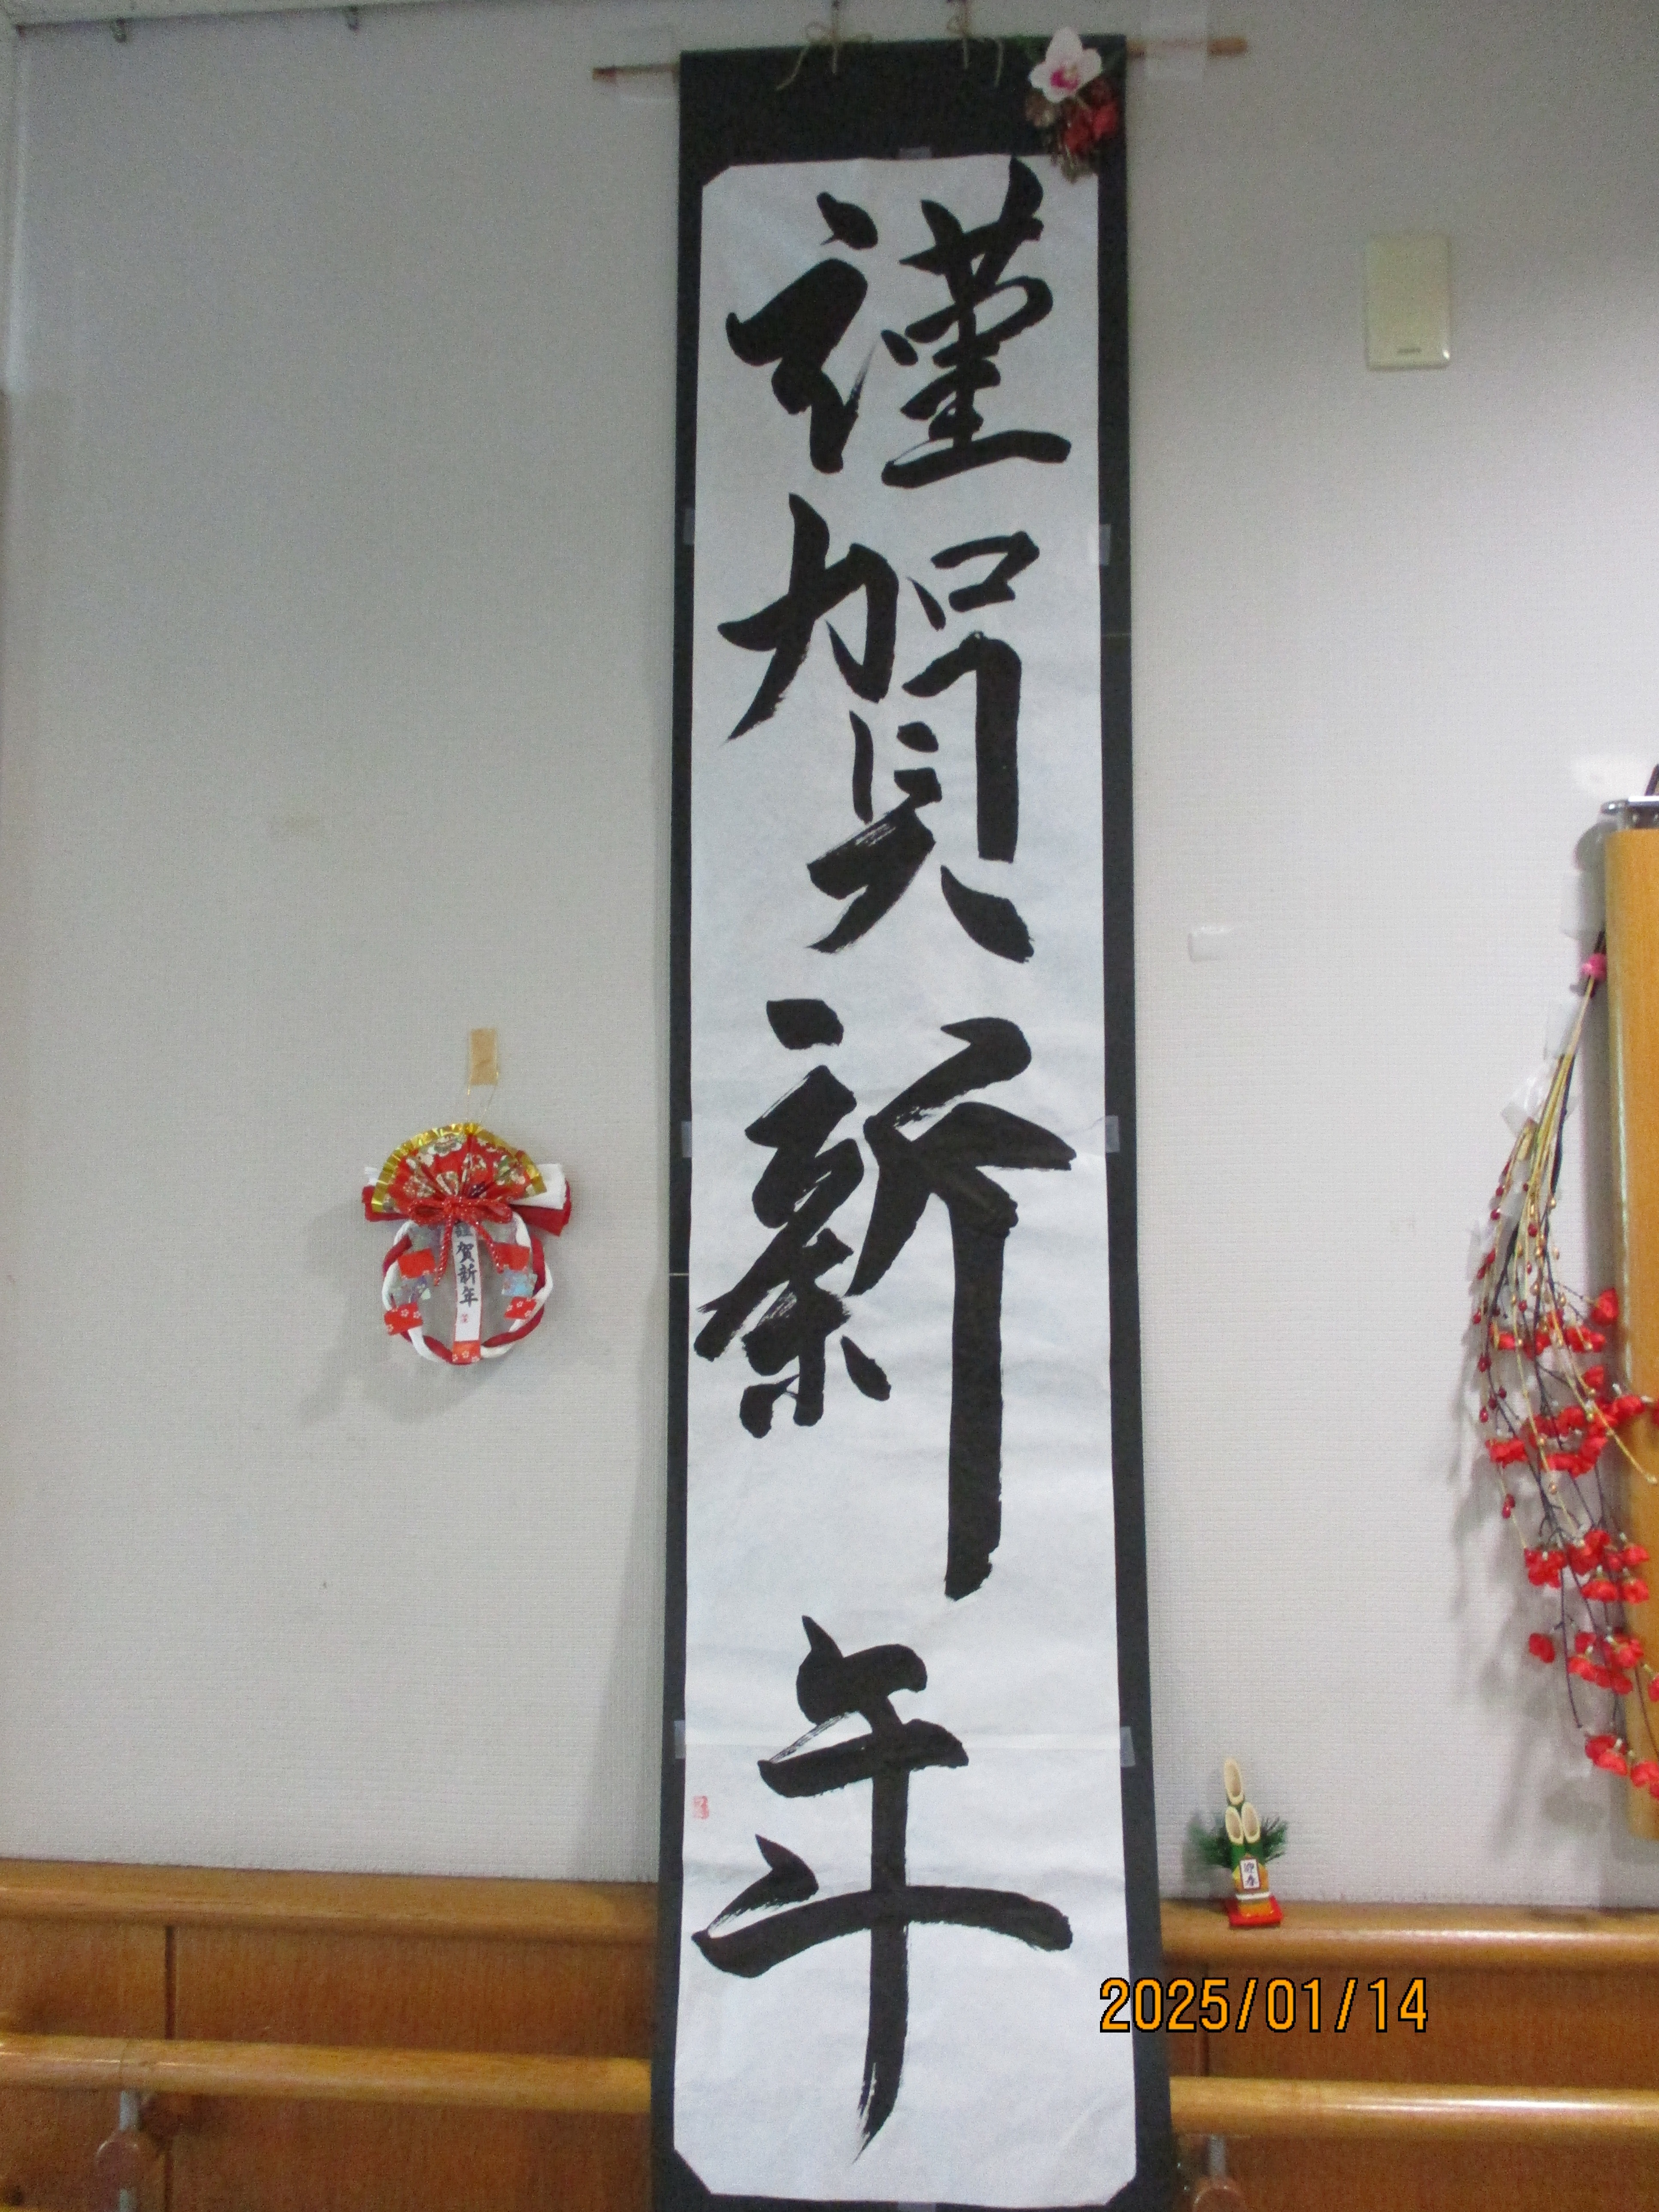 謹賀新年
謹賀新年
迎春
2025/01/14